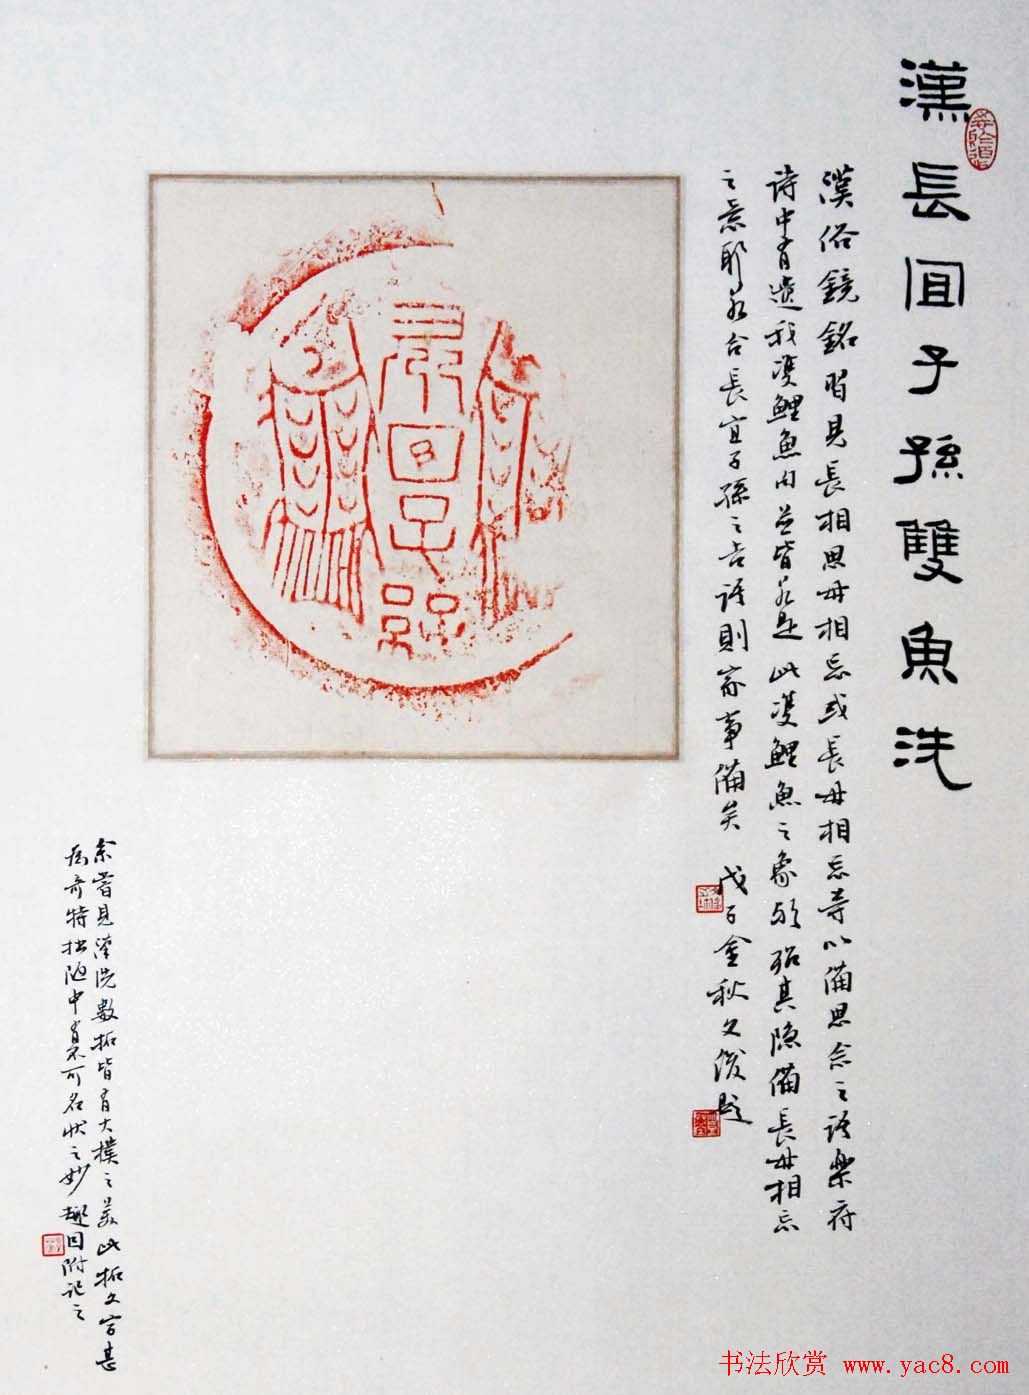 漢長宜子孫雙魚洗
漢俗鏡銘習見長相思毋相忘或長毋相忘等以備思念之語樂府
詩中有遺我雙鯉魚內並皆是此雙鯉魚之象欤殆其隐備長毋相忘
之意耶合長宜子孫之吉语則家事備矣 戊子金秋文俊题
長宜子孫
余嘗見漢洗數拓皆有大樸之美此拓文字甚
為奇特拙陋中有不可名狀之妙趣因附记之
书法欣赏 www.yac8.com